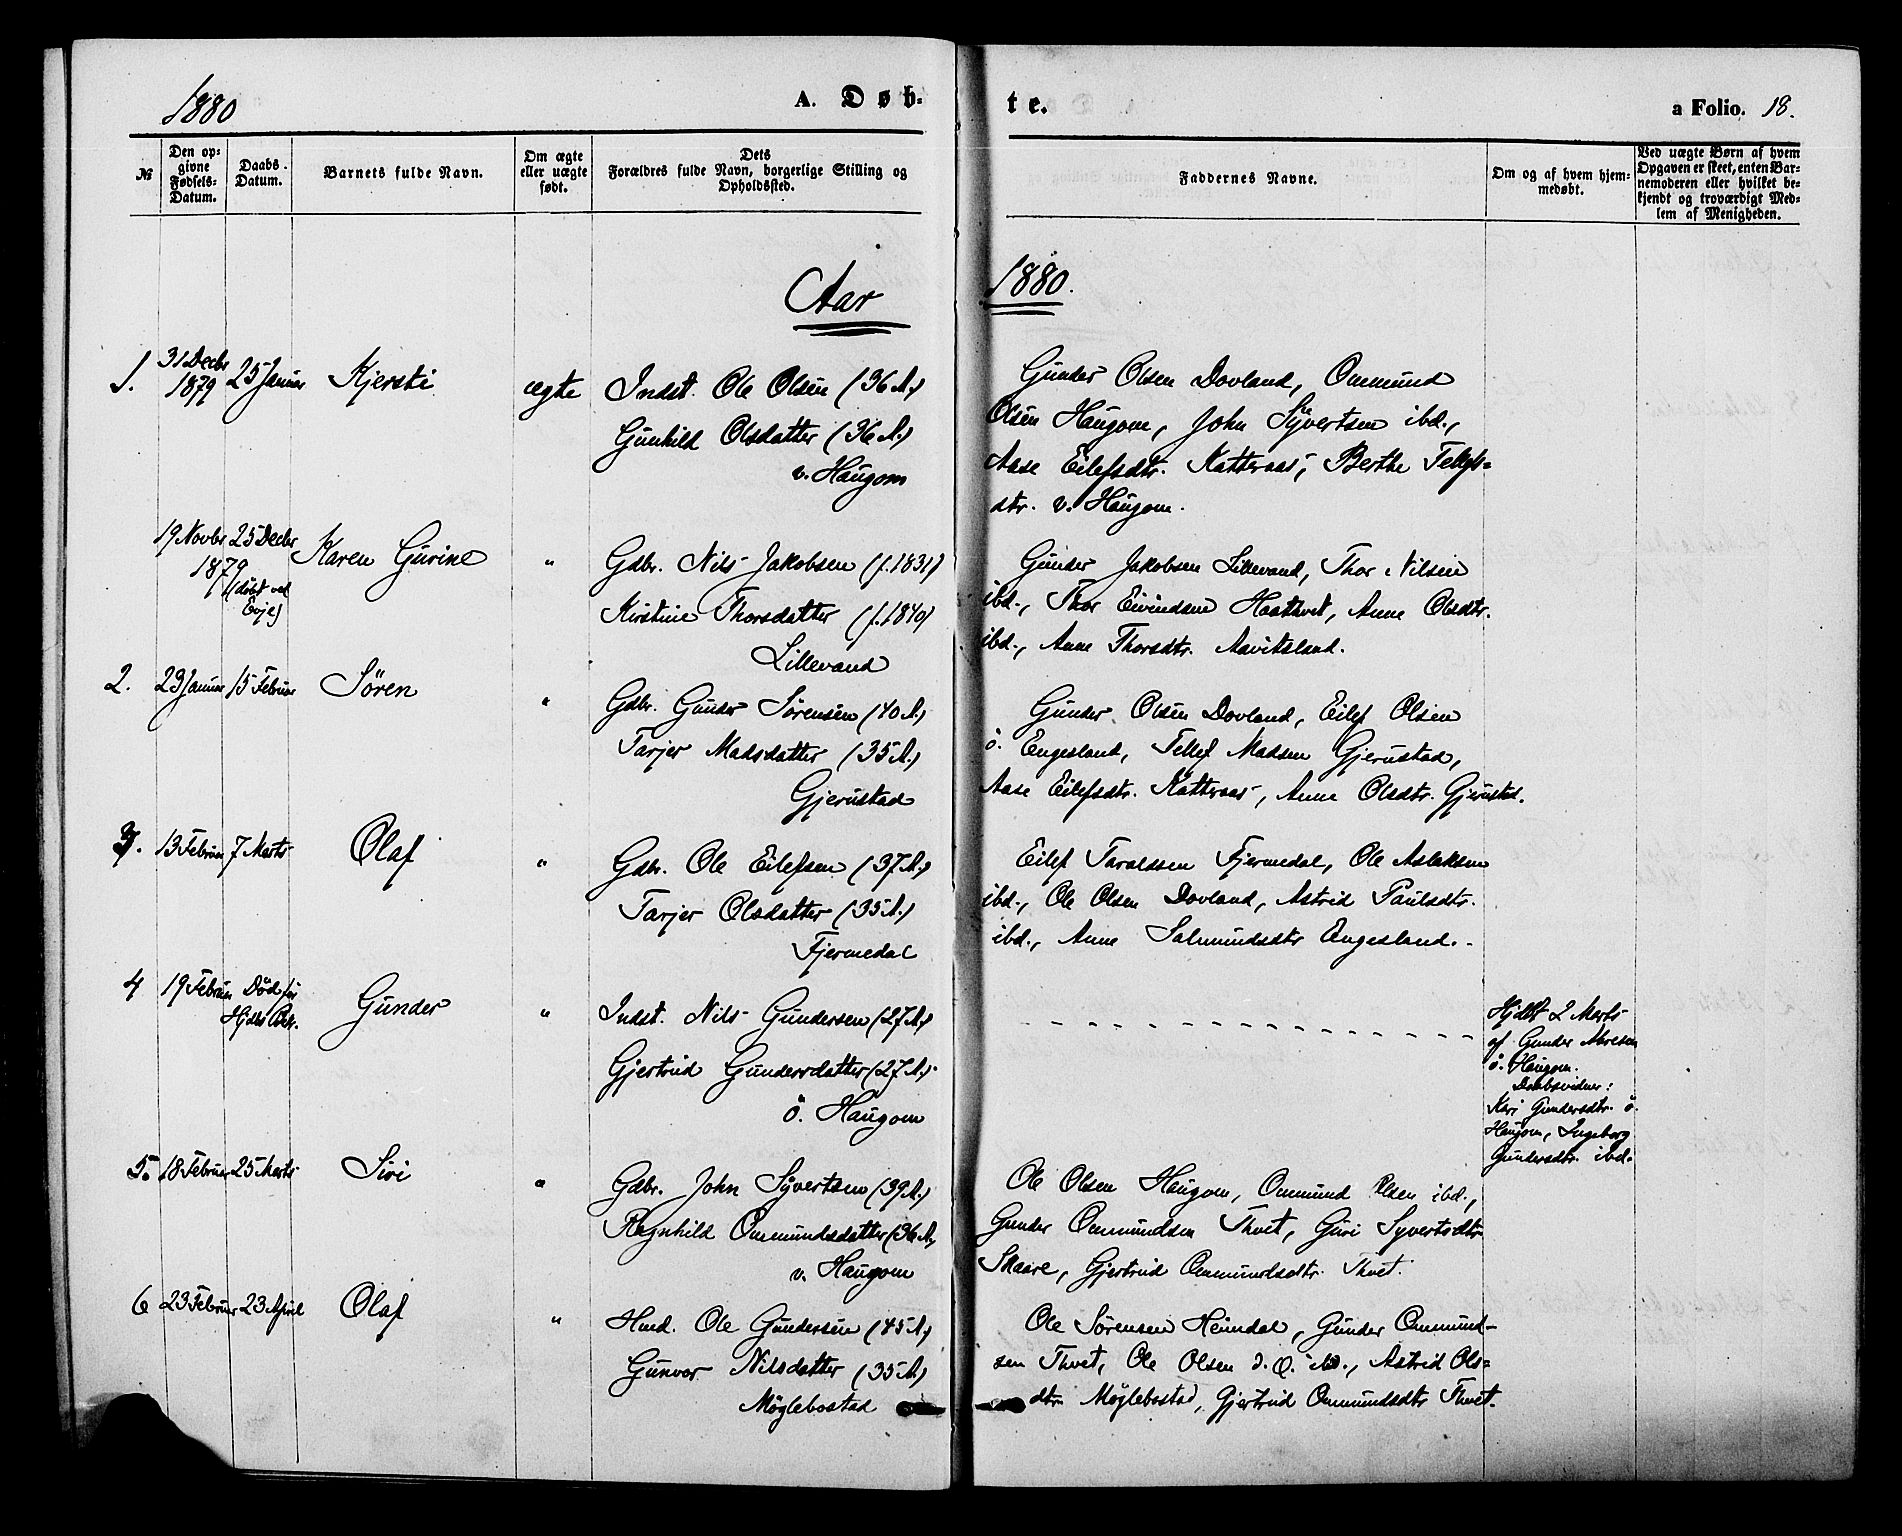 1880
A. Døb-
te.
a Folio. 18.
№
Den op-
givne
Fødsels-
Datum.
Daabs-
Datum.
Barnets fulde Navn.
Om ægte
eller uægte
født.
Dets
Forældres fulde Navn, borgerlige Stilling og
Opholdssted.
Faddernes Navne.
Om og af hvem hjem-
medøbt.
Ved uægte Børn af hvem
Opgaven er skeet, enten Bar-
nemoderen eller hvilket be-
kjendt og troværdigt Med-
lem af Menigheden.
Aar 1880.
1. 31 Decbr 1879 25 Januar Kjersti ægte
Indst. Ole Olsen (36 A.)
Gunhild Olsdatter (36 A.)
v. Haugom
Gunder Olsen Dovland, Ommund
Olsen Haugom, John Syvertsen ibd.,
Aase Eilefsdtr. Katteraas, Berthe Tellefs=
dtr. v. Haugom.
19 Novbr 1879 25 Decbr (døbt ved Evje) Karen Gurine "
Gdbr. Nils Jakobsen (f. 1831)
Kirstine Thorsdatter (f. 1840)
Lillevand
Gunder Jakobsen Lillevand, Thor Nilsen
ibd., Thor Eivindsen Haathvet, Anne Olsdtr.
ibd., Anne Thorsdtr. Aavitsland.
2. 23 Januar 15 Februar Sören "
Gdbr. Gunder Sørensen (40 A.)
Tarjer Madsdatter (35 A.)
Gjerustad
Gunder Olsen Dovland, Eilef Olsen
ö. Engesland, Tellef Madsen Gjerustad,
Aase Eilefsdtr. Katteraas, Anne Olsdtr. Gjerustad.
3. 13 Februar 7 Marts Olaf "
Gdbr. Ole Eilefsen (37 A.)
Tarjer Olsdatter (35 A.)
Fjermedal
Eilef Taraldsen Fjermedal, Ole Aslaksen
ibd., Ole Olsen Dovland, Astrid Paulsdtr.
ibd., Anne Salmundsdtr Engesland.
4 19 Februar Død før Hjdbs Bek. Gunder "
Indst. Nils Gundersen (27 A.)
Gjertrud Gundersdatter (27 A.)
ö. Haugom
Hjdbt 2 Marts
af Gunder
ö. Haugom.
Daabsvidner:
Kari Gundersdtr. ö.
Haugom, Ingeborg
Gundersdtr. ibd.
5. 18 Februar 25 Marts Siri "
Gdbr. John Syvertsen (39 A.)
Regnhild Ommundsdatter (36 A.)
v. Haugom
Ole Olsen Haugom, Ommund Olsen ibd.,
Gunder Ommundsen Thvet, Guri Syvertsdtr
Skaare, Gjertrud Ommundsdtr. Thvet.
6 23 Februar 23 April Olaf "
Hmd. Ole Gundersen (45 A.)
Gunvor Nilsdatter (35 A.)
Møglebostad
Ole Sørensen Heimdal, Gunder Ommund-
sen Thvet, Ole Olsen Astrid Ols=
dtr Møglebostad, Gjertrud Ommundsdtr Thvet.